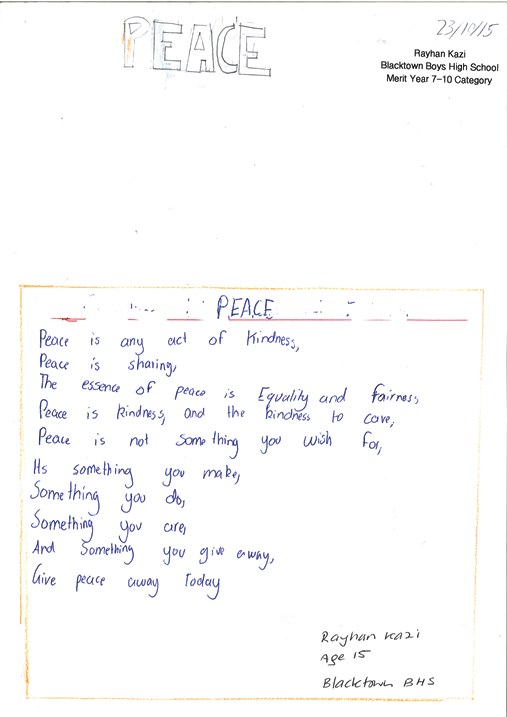 PEACE
23/10/15
Rayhan Kazi
Blacktown Boys High School
Merit Year 7–10 Category
PEACE
Peace is any act of Kindness,
Peace is sharing,
The essence of peace is Equality and fairness,
Peace is kindness, and the kindness to care,
Peace is not something you wish for,
Its something you make,
Something you do,
Something you are,
And Something you give away,
Give peace away Today
Rayhan Kazi
Age 15
Blacktown BHS